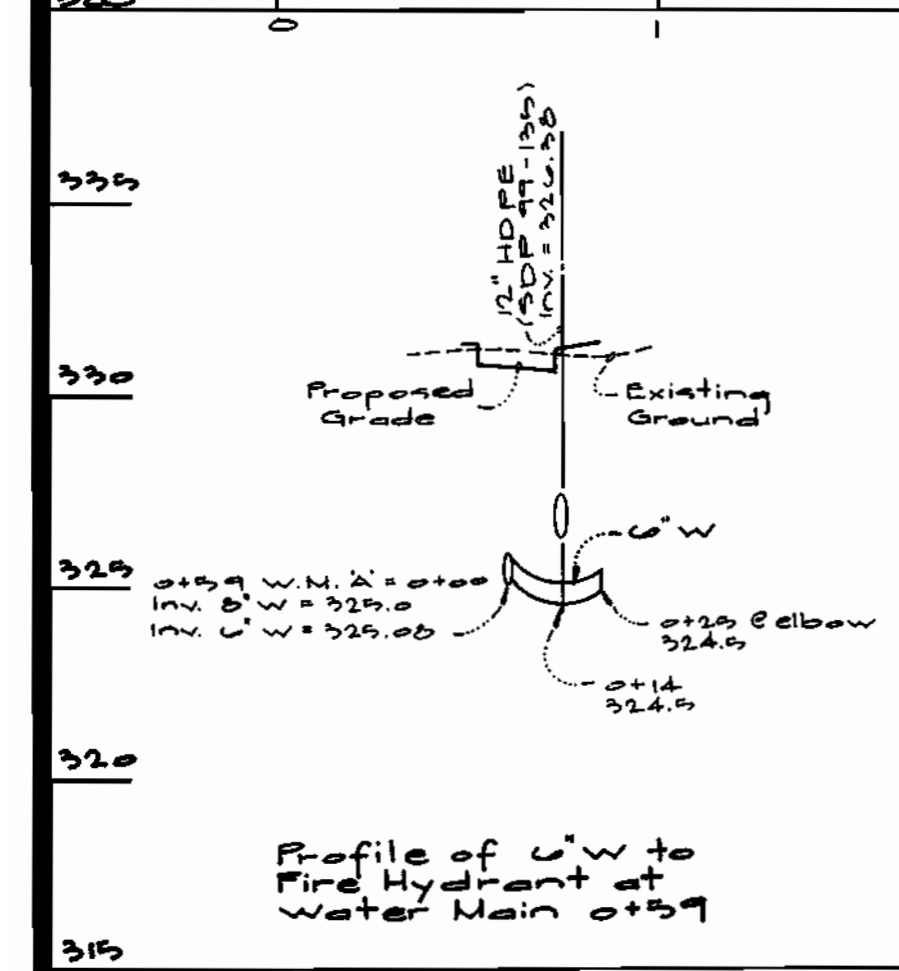 0
1
335
12" HDPE
(SDP 99-135)
Inv. = 326.38
330
Proposed
Grade
Existing
Ground
6" W
325
0+59 W.M. 'A' = 0+00
Inv. 8" W = 325.0
Inv. 6" W = 325.08
0+25 @ elbow
324.5
0+14
324.5
320
Profile of 6" W to
Fire Hydrant at
Water Main 0+59
315